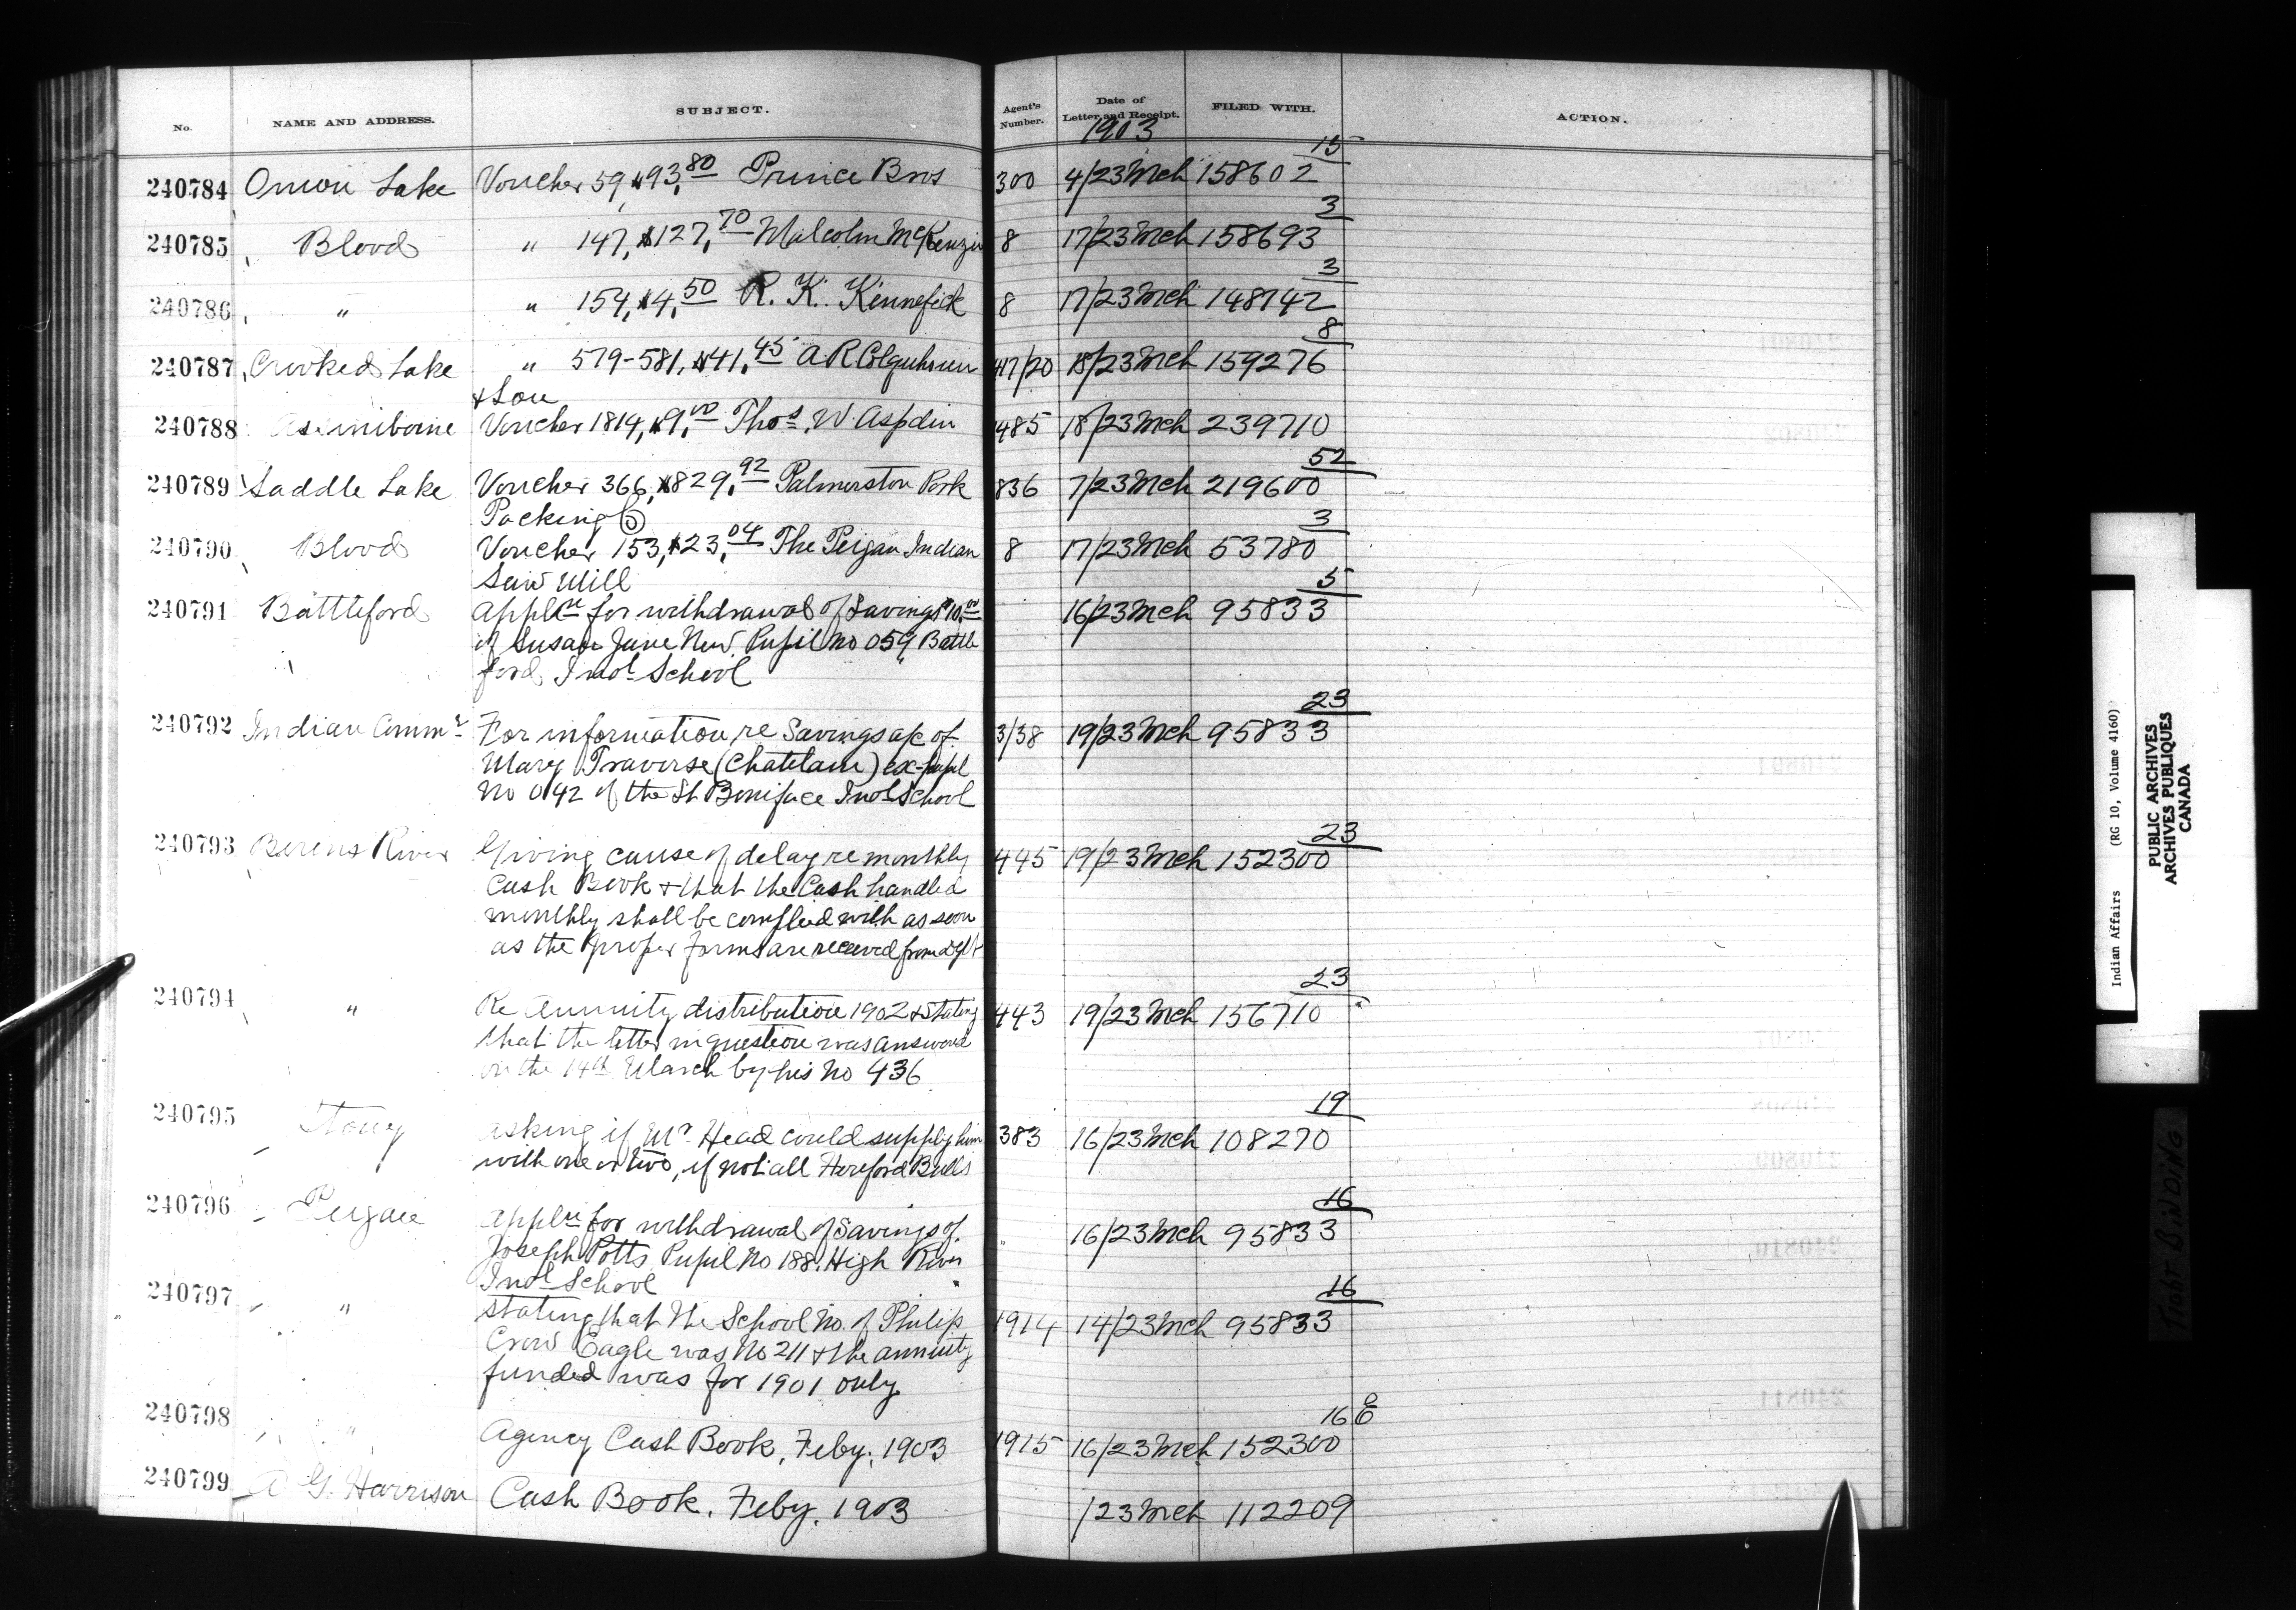 No. NAME AND ADDRESS. SUBJECT. Agent's Number. Date of Letter and Receipt. FILED WITH. ACTION.
1903
15
240784 Onion Lake Voucher 59, $93.80 Prince Bros 300 4/23 Mch 158602
3
240785 Blood " 147, $127.70 Malcolm McKenzie 8 17/23 Mch 158693
3
240786 " " 154, $4.50 R. K. Kennefick 8 17/23 Mch 148742
8
240787 Crooked Lake " 579-581, $41.45 A R Colquhoun 417/20 18/23 Mch 159276
& Son
240788 Assiniboine Voucher 1814, $9.00 Thos. W. Aspdin 485 18/23 Mch 239710
52
240789 Saddle Lake Voucher 366, $829.92 Palmerston Pork 836 7/23 Mch 219600
Packing Co
3
240790 Blood Voucher 153, $23.04 The Peigan Indian 8 17/23 Mch 53780
Saw Mill
5
240791 Battleford Appln for withdrawal of Savings $10.00 16/23 Mch 95833
of Susan Jane New Pupil No 059, Battle
ford Indl School
23
240792 Indian Commr For information re Savings a/c of 3/38 19/23 Mch 95833
Mary Traverse (Chatelain) ex-pupil
No 042 of the St Boniface Indl School
23
240793 Berens River Giving cause of delay re monthly 445 19/23 Mch 152300
Cash Book & that the Cash handled
monthly shall be complied with as soon
as the proper forms are received from dept
23
240794 " Re Annuity distribution 1902 & stating 443 19/23 Mch 156710
that the letter in question was answered
on the 14th March by his No 436
19
240795 Stony Asking if Mr Head could supply him 383 16/23 Mch 108270
with one or two, if not all Hereford Bulls
16
240796 Peigan Appln for withdrawal of Savings of 16/23 Mch 95833
Joseph Potts Pupil No 188, High River
Indl School
16
240797 " Stating that the School No. of Philip 1914 14/23 Mch 95833
Crow Eagle was No 211 & the annuity
funded was for 1901 only
16
240798 " Agency Cash Book, Feby. 1903 1915 16/23 Mch 152300
240799 G. Harrison Cash Book. Feby. 1903 /23 Mch 112209
Indian Affairs (RG 10, Volume 4160)
PUBLIC ARCHIVES
ARCHIVES PUBLIQUES
CANADA
TIGHT BINDING